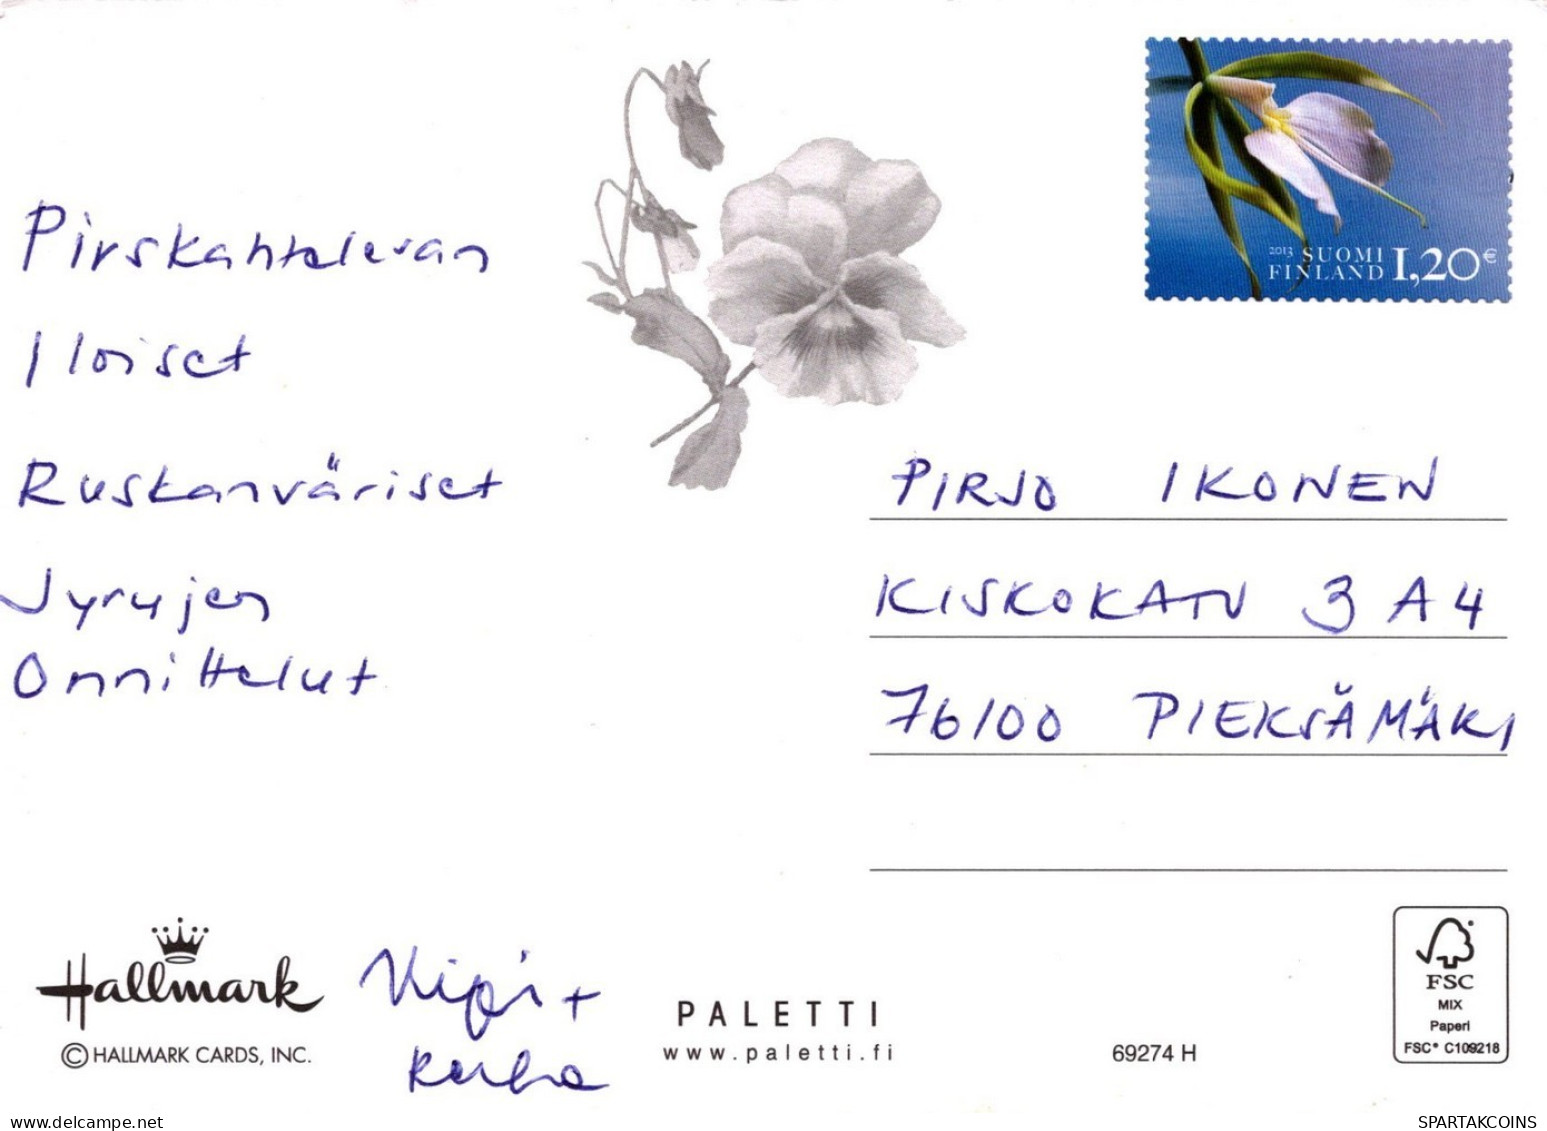 2013 SUOMI
FINLAND 1,20€
Pirskahtelevan
Iloiset
Ruskanväriset
Jyrujen
Onnittelut
PIRJO IKONEN
KISKOKATU 3 A 4
76100 PIEKSÄMÄKI
Hallmark
© HALLMARK CARDS, INC.
+
PALETTI
www.paletti.fi
69274 H
FSC
MIX
Paperi
FSC® C109218
delcampe.net
SPARTAKCOINS